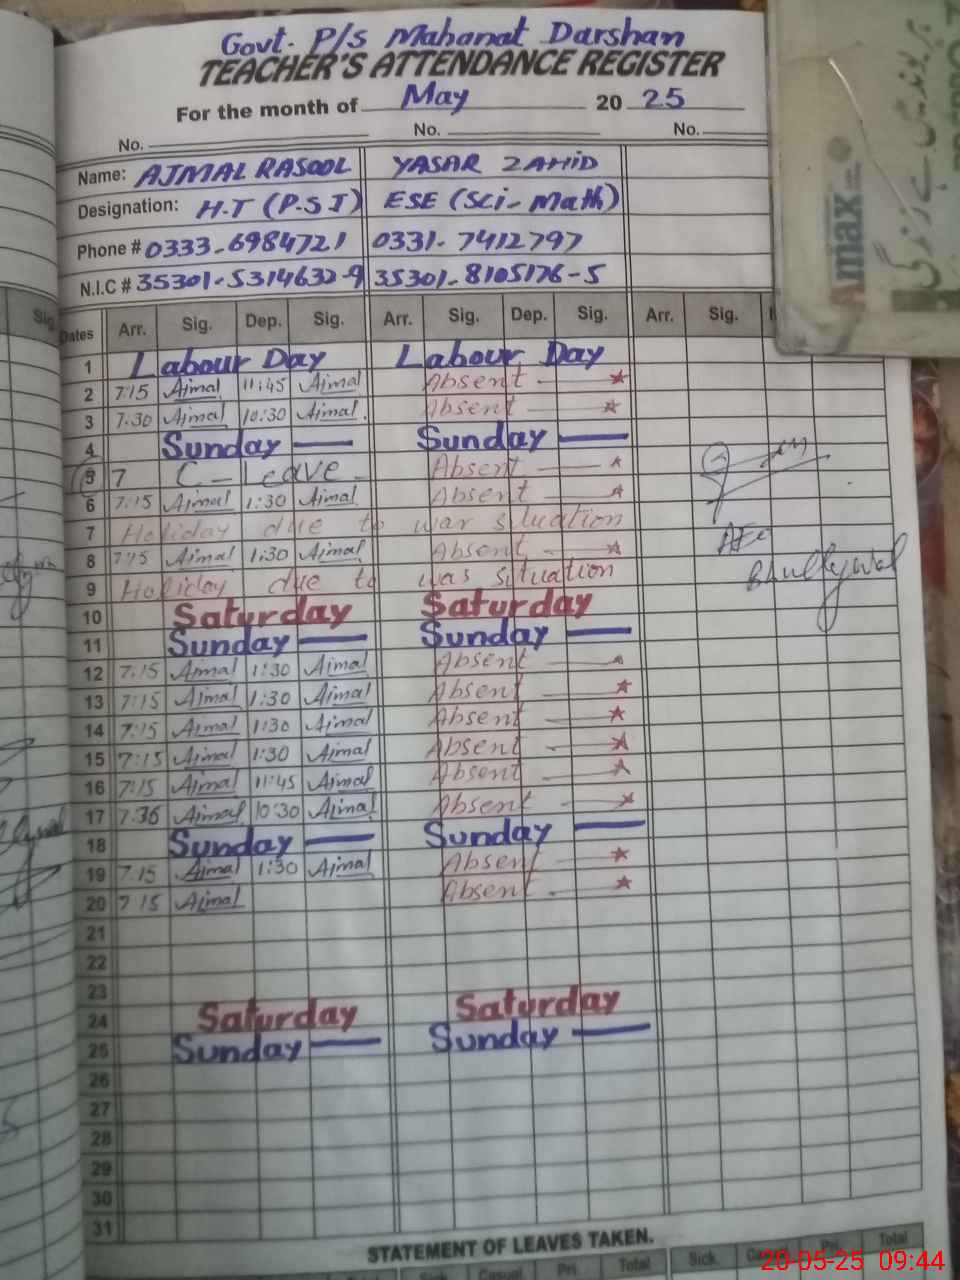 Govt. P/S Mahanat Darshan
TEACHER'S ATTENDANCE REGISTER
For the month of May 20 25
No. No. No.
Name: AJMAL RASOOL YASAR ZAHID
Designation: H.T (P.S.T) ESE (Sci-Math)
Phone # 0333-6984721 0331-7412797
N.I.C # 35301-5314632-9 35301-8105176-5
Dates Arr. Sig. Dep. Sig. Arr. Sig. Dep. Sig. Arr. Sig.
1 Labour Day Labour Day
2 7:15 Ajmal 11:45 Ajmal Absent
3 7:30 Ajmal 10:30 Ajmal Absent
4 Sunday Sunday
5 7 C-Leave Absent
6 7:15 Ajmal 1:30 Ajmal Absent
7 Holiday due to war situation
8 7:15 Ajmal 1:30 Ajmal Absent
9 Holiday due to was situation
10 Saturday Saturday
11 Sunday Sunday
12 7:15 Ajmal 1:30 Ajmal Absent
13 7:15 Ajmal 1:30 Ajmal Absent
14 7:15 Ajmal 1:30 Ajmal Absent
15 7:15 Ajmal 1:30 Ajmal Absent
16 7:15 Ajmal 11:45 Ajmal Absent
17 7:36 Ajmal 10:30 Ajmal Absent
18 Sunday Sunday
19 7:15 Ajmal 1:30 Ajmal Absent
20 7:15 Ajmal Absent
21
22
23
24 Saturday Saturday
25 Sunday Sunday
26
27
28
29
30
31
AEO
Bhullywal
STATEMENT OF LEAVES TAKEN.
Sick Casual Pri. Total Sick. Pri. Total
20-05-25 09:44
max